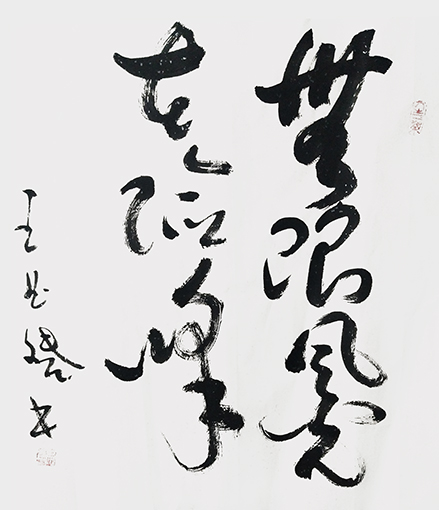 無限風光
在險峰
王 书